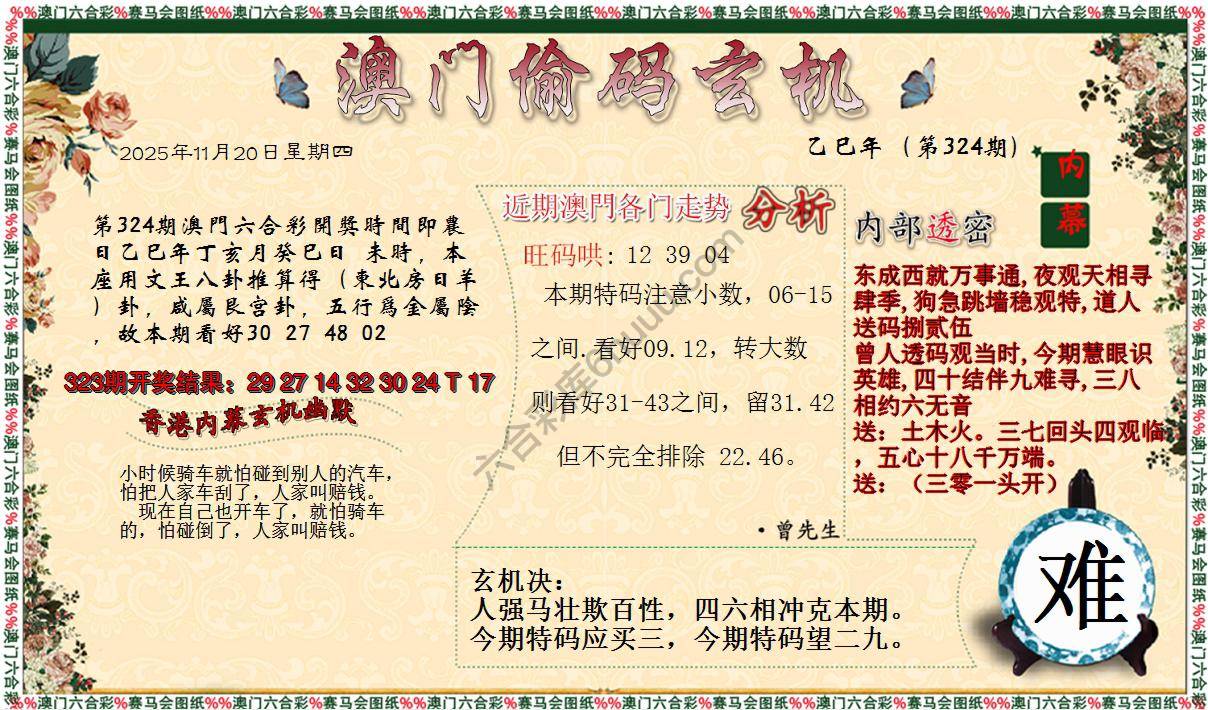 %%澳门六合彩%赛马会图纸%%澳门六合彩%赛马会图纸%%澳门六合彩%赛马会图纸%%澳门六合彩%赛马会图纸%%澳门六合彩%赛马会图纸%%澳门六合彩%赛马会图纸%%
澳门偷码玄机
2025年11月20日星期四
乙巳年（第324期）
内幕
第324期澳門六合彩開獎時間即農
日乙巳年丁亥月癸巳日 未時，本
座用文王八卦推算得（東北房日羊
）卦，咸屬艮宫卦，五行爲金屬陰
，故本期看好30 27 48 02
323期开奖结果：29 27 14 32 30 24 T 17
香港内幕玄机幽默
小时候骑车就怕碰到别人的汽车，
怕把人家车刮了，人家叫赔钱。
现在自己也开车了，就怕骑车
的，怕碰倒了，人家叫赔钱。
近期澳門各门走势 分析
旺码哄: 12 39 04
本期特码注意小数，06-15
之间.看好09.12，转大数
则看好31-43之间，留31.42
但不完全排除 22.46。
·曾先生
内部透密
东成西就万事通,夜观天相寻
肆季,狗急跳墙稳观特,道人
送码捌贰伍
曾人透码观当时,今期慧眼识
英雄,四十结伴九难寻,三八
相约六无音
送：土木火。三七回头四观临
，五心十八千万端。
送：（三零一头开）
玄机决：
人强马壮欺百性，四六相冲克本期。
今期特码应买三，今期特码望二九。
难